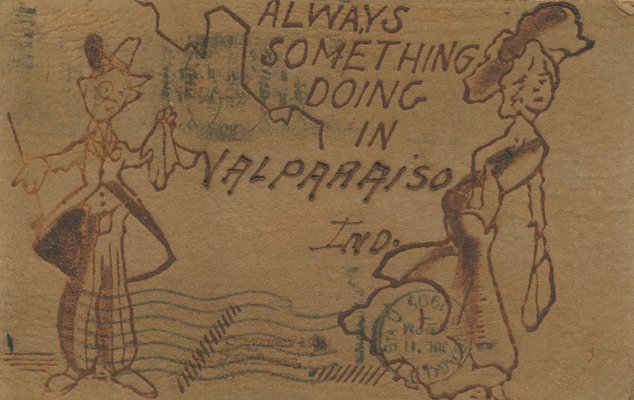 ALWAYS
SOMETHING
DOING
IN
VALPARAISO
IND.